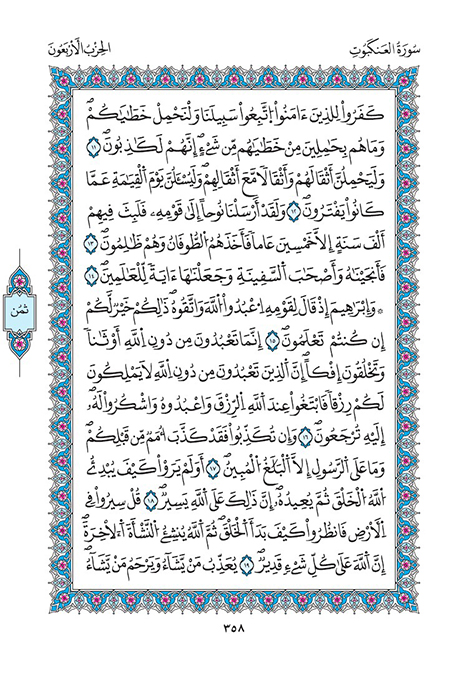 سُورَةُ العَنكَبُوتِ
الحِزْبُ الَارْبَعُونَ
كَفَرُواْ لِلذِينَ ءَامَنُواْ اِتَّبِعُواْ سَبِيلَنَا وَلْنَحْمِلْ خَطَٰيَٰكُمْۖ
وَمَا هُم بِحَٰمِلِينَ مِنْ خَطَٰيَٰهُم مِّن شَےْءٍۖ اِنَّهُمْ لَكَٰذِبُونَۖ ١١
وَلَيَحْمِلُنَّ أَثْقَالَهُمْ وَأَثْقَالاٗ مَّعَ أَثْقَالِهِمْۖ وَلَيُسْـَٔلُنَّ يَوْمَ اَلْقِيَٰمَةِ عَمَّا
كَانُواْ يَفْتَرُونَۖ ١٢ وَلَقَدَ اَرْسَلْنَا نُوحاً اِلَىٰ قَوْمِهِۦ فَلَبِثَ فِيهِمُۥٓ
أَلْفَ سَنَةٍ اِلَّا خَمْسِينَ عَاماٗ فَأَخَذَهُمُ اُلطُّوفَانُ وَهُمْ ظَٰلِمُونَۖ ١٣
فَأَنجَيْنَٰهُ وَأَصْحَٰبَ اَلسَّفِينَةِ وَجَعَلْنَٰهَآ ءَايَةٗ لِّلْعَٰلَمِينَۖ ١٤
* وَإِبْرَٰهِيمَ إِذْ قَالَ لِقَوْمِهِ اِ۟عْبُدُواْ اُللَّهَ وَاتَّقُوهُۖ ذَٰلِكُمْ خَيْرٞ لَّكُمُۥٓ
إِن كُنتُمْ تَعْلَمُونَۖ ١٥ إِنَّمَا تَعْبُدُونَ مِن دُونِ اِللَّهِ أَوْثَٰناٗ
وَتَخْلُقُونَ إِفْكاًۖ اِنَّ اَلذِينَ تَعْبُدُونَ مِن دُونِ اِللَّهِ لَا يَمْلِكُونَ
لَكُمْ رِزْقاٗ فَابْتَغُواْ عِندَ اَللَّهِ اِلرِّزْقَ وَاعْبُدُوهُ وَاشْكُرُواْ لَهُۥٓۖ
إِلَيْهِ تُرْجَعُونَۖ ١٦ وَإِن تُكَذِّبُواْ فَقَدْ كَذَّبَ أُمَمٞ مِّن قَبْلِكُمْۖ
وَمَا عَلَى اَلرَّسُولِ إِلَّا اَلْبَلَٰغُ اُلْمُبِينُۖ ١٧ أَوَلَمْ يَرَوْاْ كَيْفَ يُبْدِئُ
اُللَّهُ اُلْخَلْقَ ثُمَّ يُعِيدُهُۥٓۖ إِنَّ ذَٰلِكَ عَلَى اَللَّهِ يَسِيرٞۖ ١٨ قُلْ سِيرُواْ فِے
اِلَارْضِ فَانظُرُواْ كَيْفَ بَدَأَ اَلْخَلْقَۖ ثُمَّ اَللَّهُ يُنشِۓُ اُلنَّشْأَةَ اَلَاخِرَةَۖ
إِنَّ اَللَّهَ عَلَىٰ كُلِّ شَےْءٖ قَدِيرٞۖ ١٩ يُعَذِّبُ مَنْ يَّشَآءُ وَيَرْحَمُ مَنْ يَّشَآءُۖ
ثُمُن
٣٥٨